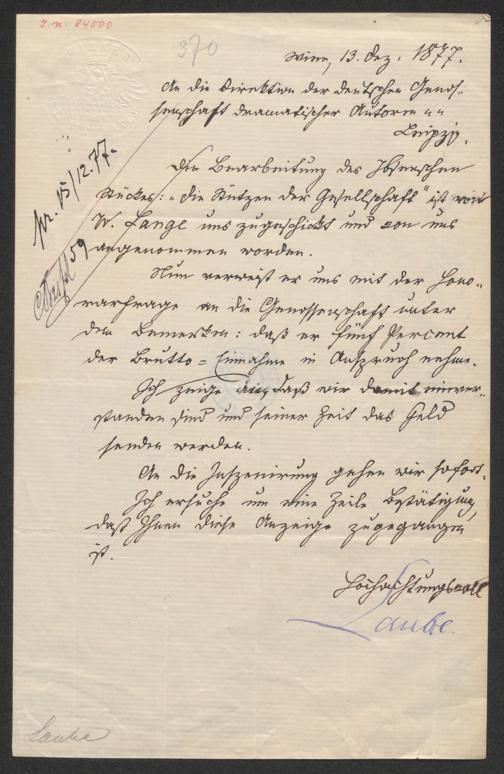 J. N. 84500
370
Wien, 13. Dez. 1877.
An die Direktion der deutschen Genos-
senschaft dramatischer Autoren
Leipzig.
pr. 15/12.77.
59
Die Bearbeitung des Ibsenschen
Stückes: „die Stützen der Gesellschaft" ist von
W. Lange uns zugeschickt und von uns
angenommen worden.
Nun verweist er uns mit der Hono-
rarfrage an die Genossenschaft unter
dem Bemerken: daß er fünf Percent
der Brutto=Einnahme in Anspruch nehme.
Ich zeige an, daß wir damit einver-
standen sind und seiner Zeit das Geld
senden werden.
An die Inszenirung gehen wir sofort.
Ich ersuche um eine Zeile Bestätigung,
daß Ihnen diese Anzeige zugegangen
ist.
Hochachtungsvoll
Laube.
Laube